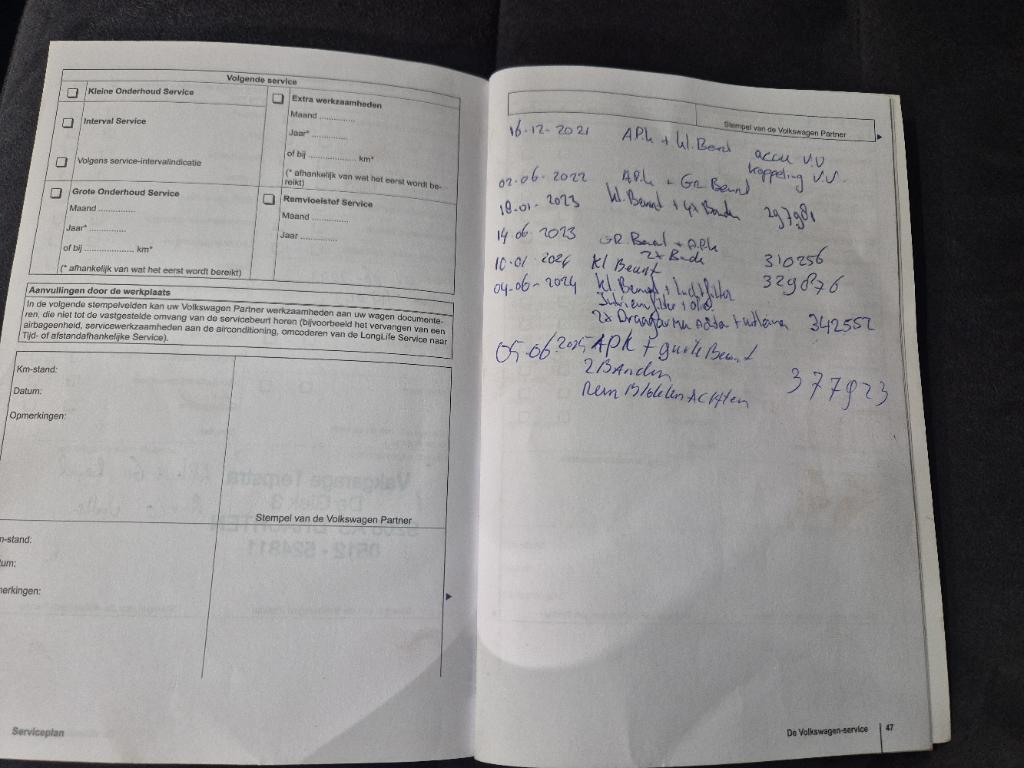 Volgende service
Kleine Onderhoud Service
Interval Service
Volgens service-intervalindicatie
Extra werkzaamheden
Maand ..............
Jaar* ..............
of bij .................... km*
(* afhankelijk van wat het eerst wordt be-
reikt)
Grote Onderhoud Service
Maand ..............
Jaar* ..............
of bij .................... km*
(* afhankelijk van wat het eerst wordt bereikt)
Remvloeistof Service
Maand ..............
Jaar ..............
Aanvullingen door de werkplaats
In de volgende stempelvelden kan uw Volkswagen Partner werkzaamheden aan uw wagen documente-
ren, die niet tot de vastgestelde omvang van de servicebeurt horen (bijvoorbeeld het vervangen van een
airbageenheid, servicewerkzaamheden aan de airconditioning, omcoderen van de LongLife Service naar
Tijd- of afstandafhankelijke Service).
Km-stand:
Datum:
Opmerkingen:
Stempel van de Volkswagen Partner
m-stand:
um:
erkingen:
Serviceplan
Stempel van de Volkswagen Partner
16-12-2021 APK + Kl. Beurt accu V.V
koppeling V.V.
02-06-2022 APK + GR Beurt
18-01-2023 Kl. Beurt + 297981
14 06 2023 GR. Beurt + APK
2x 310256
10-01 2024 Kl Beurt 329876
04-06-2024 Kl Beurt + luchtfilter
2x 342552
05-06 2025 APK + grote Beurt
2 Banden 377923
Rem
De Volkswagen-service 47